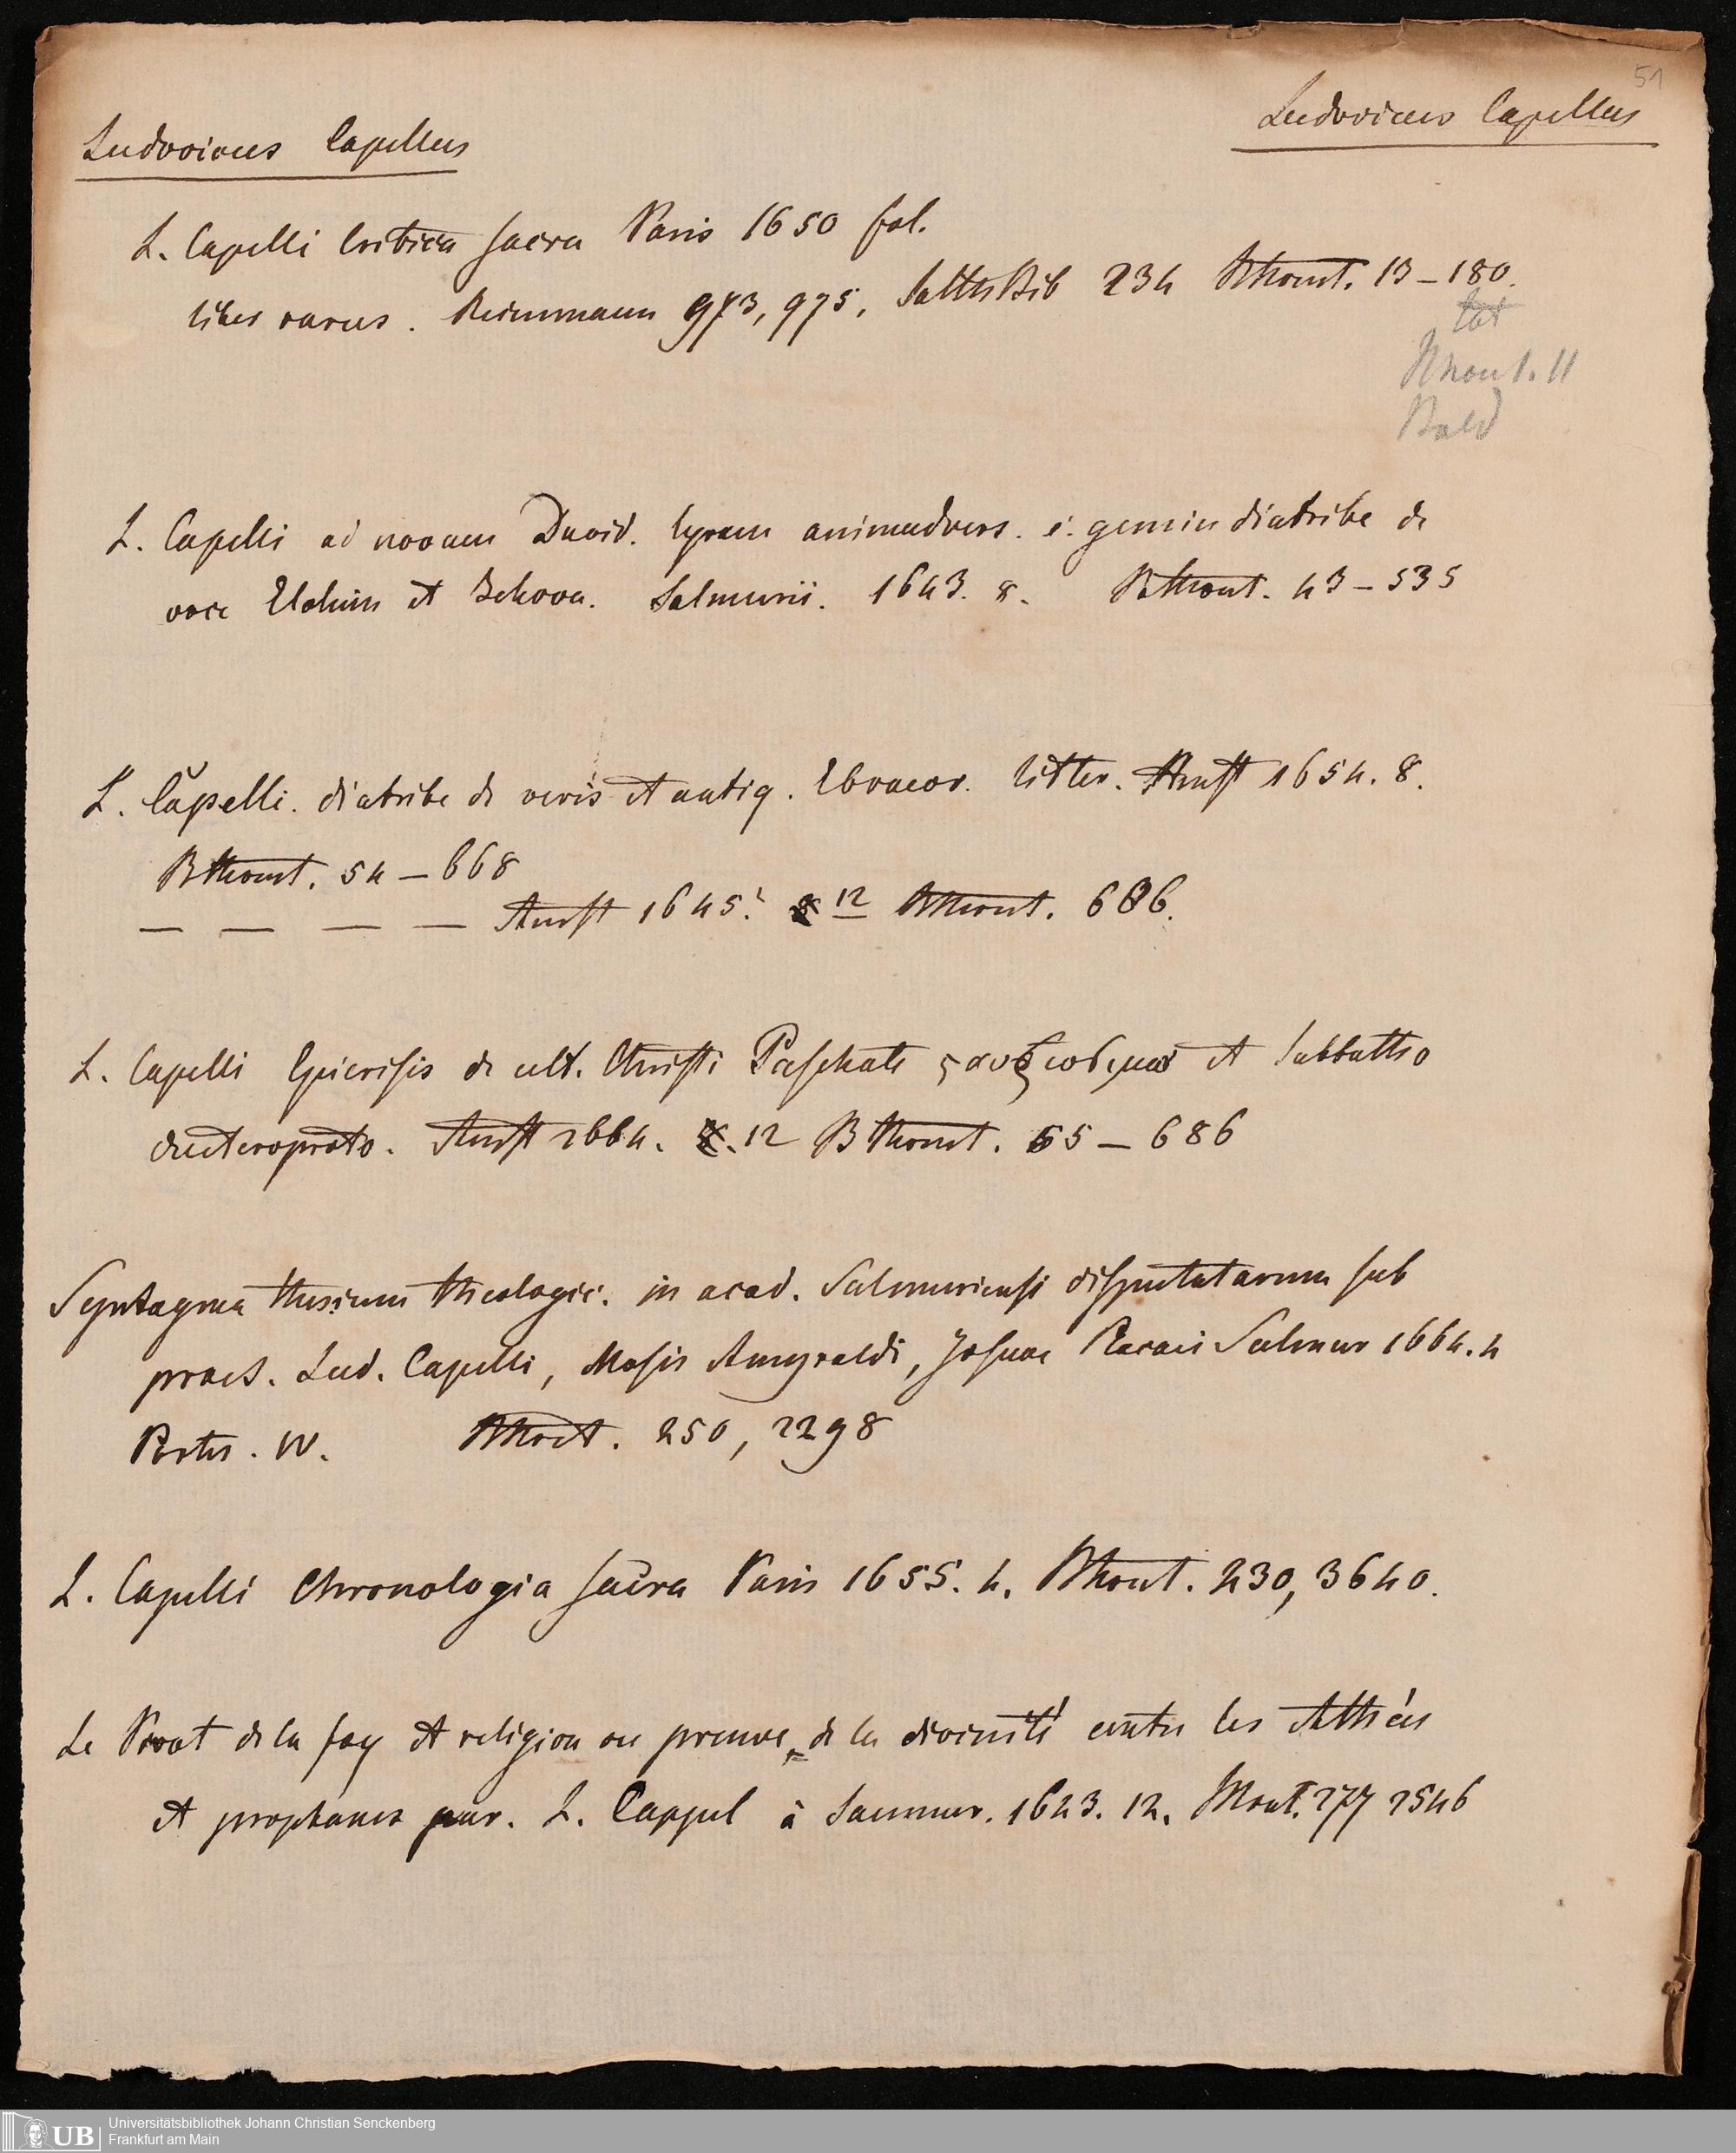 51
Ludovicus Capellus
Ludovicus Capellus
L. Capelli Critica sacra Paris 1650 fol.
liber rarus. Reimmann 973, 975, 234 BThomt. 13–180.
tot
Bald
L. Capelli ad novam David. lyram animadvers. c. gemin diatribe de
voce Elohim et Jehova. Salmurii. 1643. 8. BThomt. 43–535
L. Capelli. diatribe de veris et antiq. Ebraeor. litter. Amst 1654. 8.
BThomt. 54–668
— — — — Amst 1645. 12 BThomt. 686.
L. Capelli Epicrisis de ult. Christi Paschate et Sabbatho
deuteroproto. Amst 1664. 8. 12 BThomt. 65–686
Syntagma thesium theologic. in acad. Salmuriensi disputatarum sub
praes. Lud. Capelli, Mosis Amyraldi, Josuae Placaei Salmur 1664. 4
Partes. IV. 250, 2298
L. Capelli Chronologia sacra Paris 1655. 4. BThomt. 230, 3640.
Le Pivot de la foy et religion ou preuve de la divinité contre les Athées
et prophanes par. L. Cappel à Saumur. 1643. 12. 277 2546
UB
Universitätsbibliothek Johann Christian Senckenberg
Frankfurt am Main